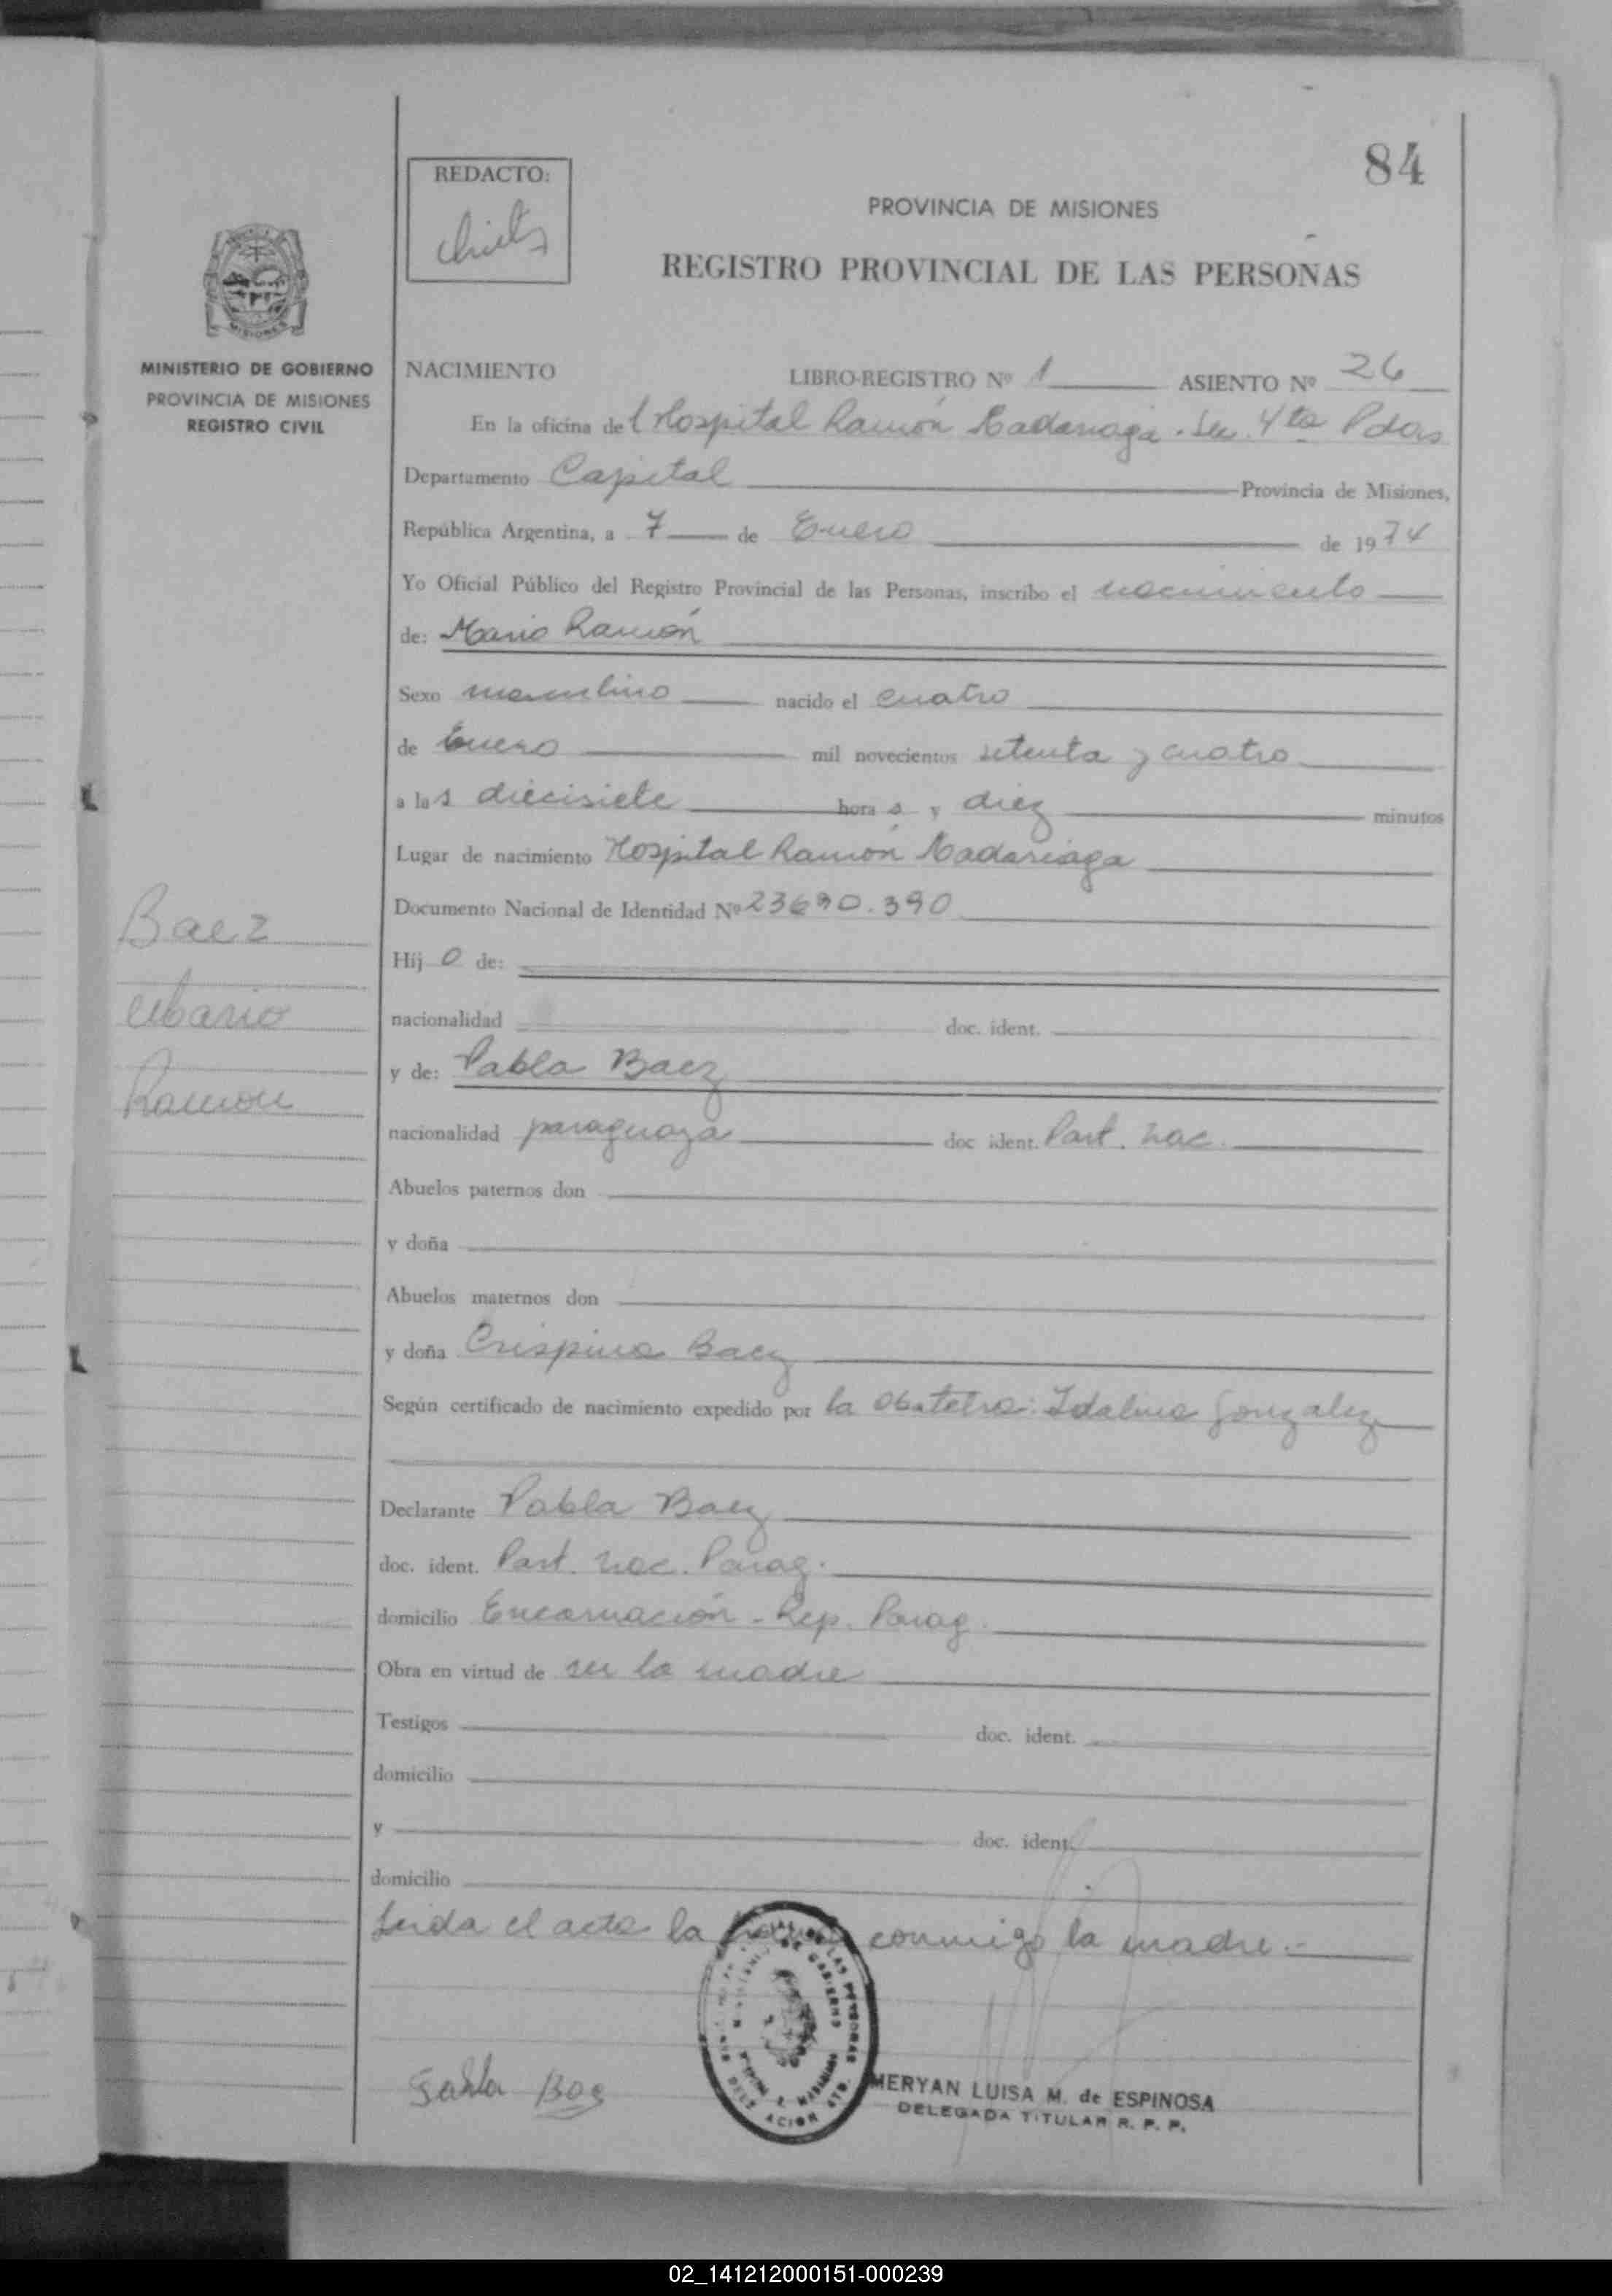 84
REDACTO:
PROVINCIA DE MISIONES
REGISTRO PROVINCIAL DE LAS PERSONAS
MISIONES
MINISTERIO DE GOBIERNO
PROVINCIA DE MISIONES
REGISTRO CIVIL
NACIMIENTO LIBRO-REGISTRO Nº 1 ASIENTO Nº 26
En la oficina del Hospital Ramón Madariaga - Sec. 4ta Pdas
Departamento Capital Provincia de Misiones,
República Argentina, a 7 de Enero de 1974
Yo Oficial Público del Registro Provincial de las Personas, inscribo el nacimiento
de: Mario Ramón
Sexo masculino nacido el cuatro
de Enero mil novecientos setenta y cuatro
a las diecisiete horas y diez minutos
Lugar de nacimiento Hospital Ramón Madariaga
Documento Nacional de Identidad Nº 23690.390
Baez
Mario
Ramon
Hijo de:
nacionalidad doc. ident.
y de: Pabla Baez
nacionalidad paraguaya doc ident. Part. nac.
Abuelos paternos don
y doña
Abuelos maternos don
y doña Crispina Baez
Según certificado de nacimiento expedido por la Obstetra: Idalina Gonzalez
Declarante Pabla Baez
doc. ident. Part. nac. Parag.
domicilio Encarnación - Rep. Parag.
Obra en virtud de ser la madre
Testigos doc. ident.
domicilio
y doc. ident.
domicilio
Leida el acta la conmigo la madre.-
Pabla Baez
MERYAN LUISA M. de ESPINOSA
DELEGADA TITULAR R. P. P.
02_141212000151-000239